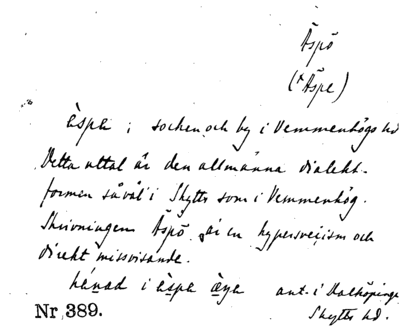 Äspö
(*Äspe)
èspe ; socken och by i Vemmenhögs hd
Detta uttal är den allmänna dialekt-
formen såväl i Skytts som i Vemmenhög.
Skrivningen Äspö är en hypersvecism och
direkt missvisande.
i èspe ant. i
Skytts hd.
Nr 389.